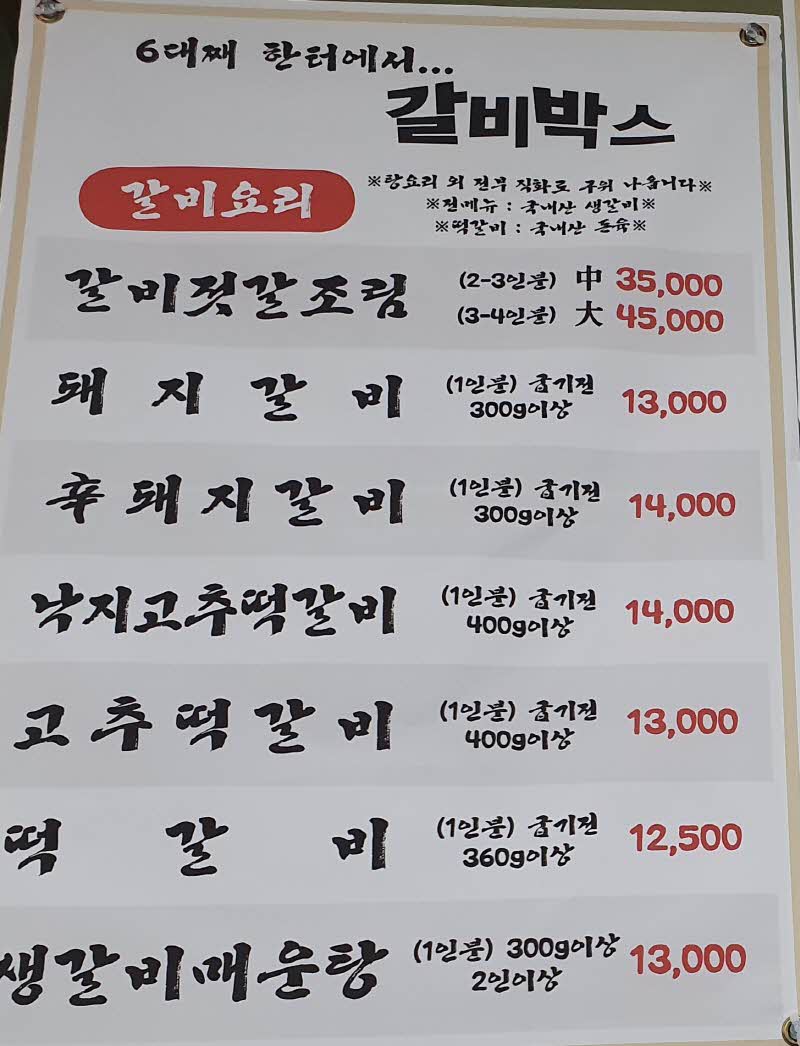 6대째 한터에서...
갈비박스
갈비요리
※탕요리 외 전부 직화로 구워 나옵니다※
※전메뉴 : 국내산 생갈비※
※떡갈비 : 국내산 돈육※
갈비젓갈조림 (2-3인분) 中 35,000
(3-4인분) 大 45,000
돼지갈비 (1인분) 굽기전 300g이상 13,000
辛돼지갈비 (1인분) 굽기전 300g이상 14,000
낙지고추떡갈비 (1인분) 굽기전 400g이상 14,000
고추떡갈비 (1인분) 굽기전 400g이상 13,000
떡갈비 (1인분) 굽기전 360g이상 12,500
생갈비매운탕 (1인분) 300g이상 2인이상 13,000